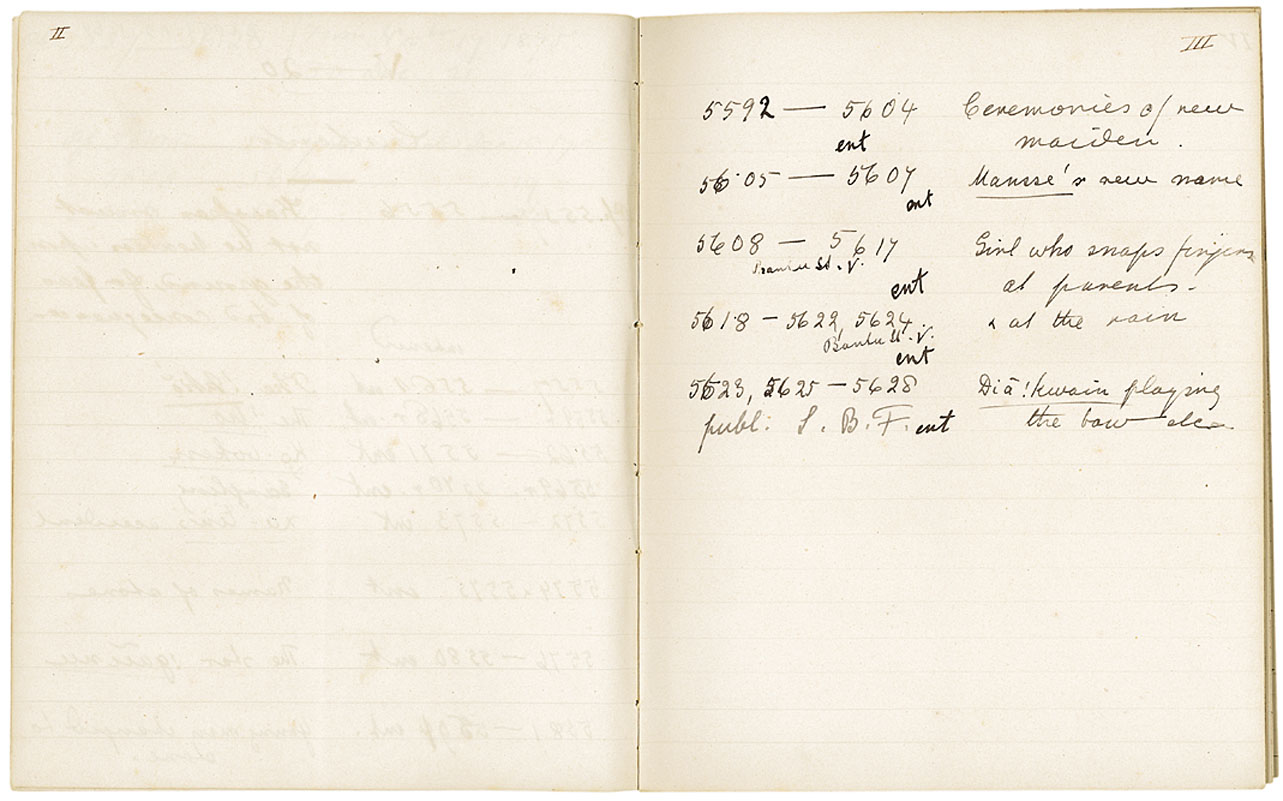 II
III
5592 — 5604 Ceremonies of new
ent maiden.
5605 — 5607 Mansse's new name
ent
5608 — 5617 Girl who snaps fingers
Bantu St. V.
ent at parents -
5618 - 5622, 5624. & at the rain
Bantu St. V.
ent
5623, 5625 - 5628 Diä!kwain playing
publ: S. B. F. ent the bow etc